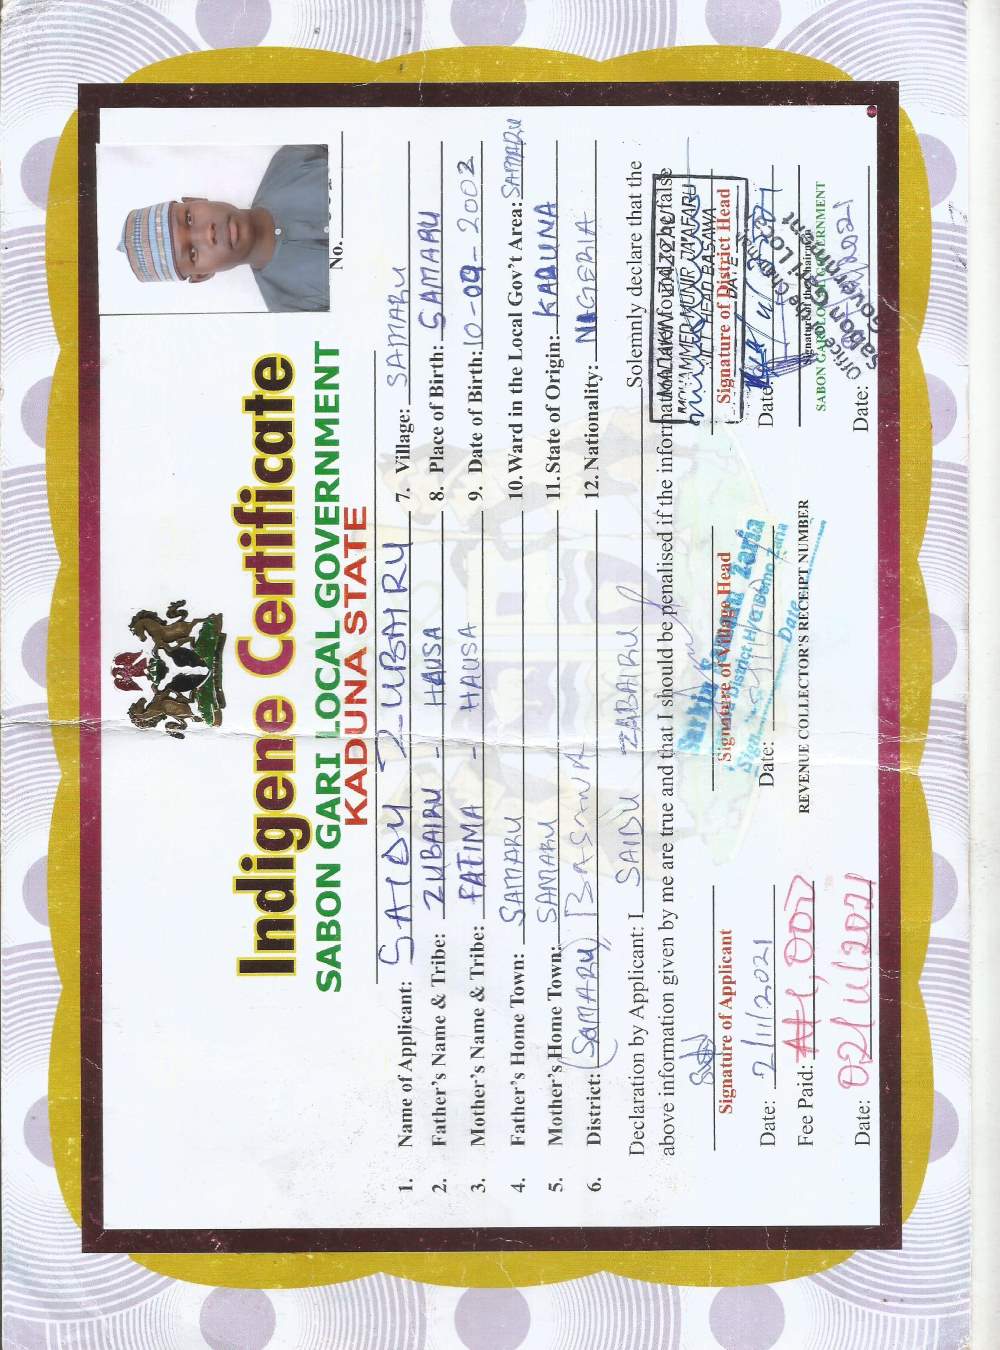 No.
Indigene Certificate
SABON GARI LOCAL GOVERNMENT
KADUNA STATE
1. Name of Applicant: SAIDU ZUBAIRU
2. Father's Name & Tribe: ZUBAIRU - HAUSA
3. Mother's Name & Tribe: FATIMA - HAUSA
4. Father's Home Town: SAMARU
5. Mother's Home Town: SAMARU
6. District: (SAMARU) BASAWA
7. Village: SAMARU
8. Place of Birth: SAMARU
9. Date of Birth: 10-09-2002
10. Ward in the Local Gov't Area: SAMARU
11. State of Origin: KADUNA
12. Nationality: NIGERIA
Declaration by Applicant: I SAIDU ZABAIRU Solemnly declare that the
above information given by me are true and that I should be penalised if the information is found to be false
MOHAMMED MUNIR JA'AFARU
HEAD BASAWA
DATE
Signature of Applicant
Signature of Village Head
Signature of District Head
Sarkin Samaru Zaria
District H/Q Bomo Zaria
Sign
Date
Date: 2/11/2021
Date:
Date:
Fee Paid: ₦1,000
REVENUE COLLECTOR'S RECEIPT NUMBER
Signature of the Chairman
SABON GARI LOCAL GOVERNMENT
Office of the Chairman
Sabon Gari Local
Government
Date: 02/11/2021
Date: